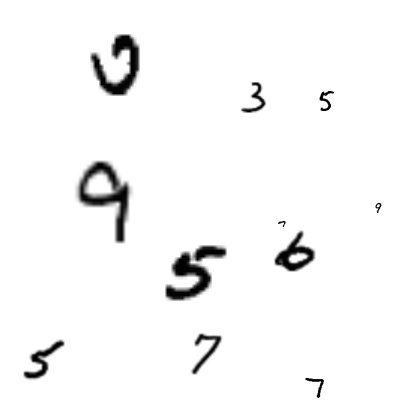 0
3 5
9
9
7
5 6
5 7
7